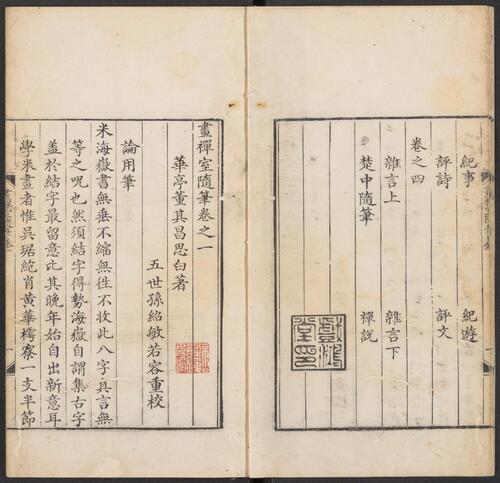 紀事 紀遊
評詩 評文
卷之四
雜言上 雜言下
楚中隨筆 禪說
畫禪室隨筆卷之一
華亭董其昌思白著
五世孫紹敏若容重校
論用筆
米海嶽書無垂不縮無往不收此八字真言無
等之咒也然須結字得勢海嶽自謂集古字
蓋於結字最留意此其晚年始自出新意耳
學米書者惟吳琚絶肖黃華樗寮一支半節